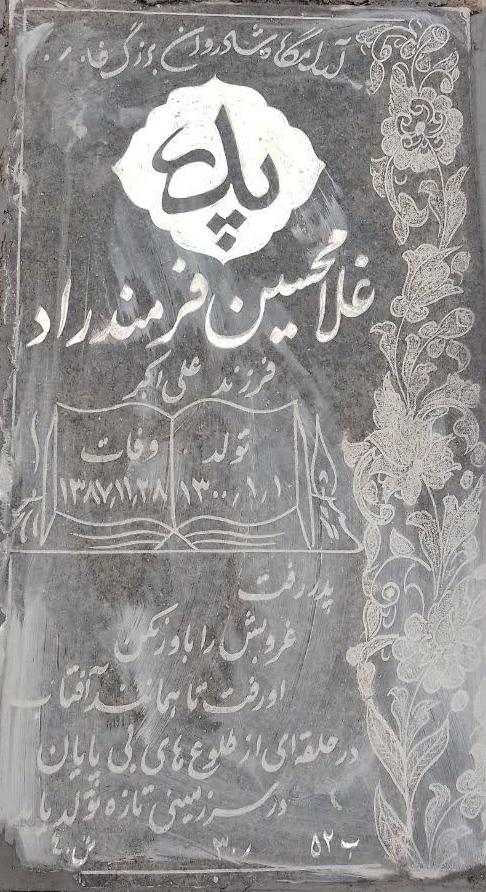 آرامگاه شادروان بزرگ خا
پدر
غلامحسین فرمندراد
فرزند علی اکبر
تولد وفات
۱۳۰۰٫۱٫۱۰ ۱۳۸۷٫۱۱٫۲۸
پدر رفت
غروبش را باور نکن
او رفت تا همانند آفتاب
در حلقه ای از طلوع های بی پایان
در سرزمینی تازه تولد یابد
ب ۵۲ ر ۳۰ ش ۴۰